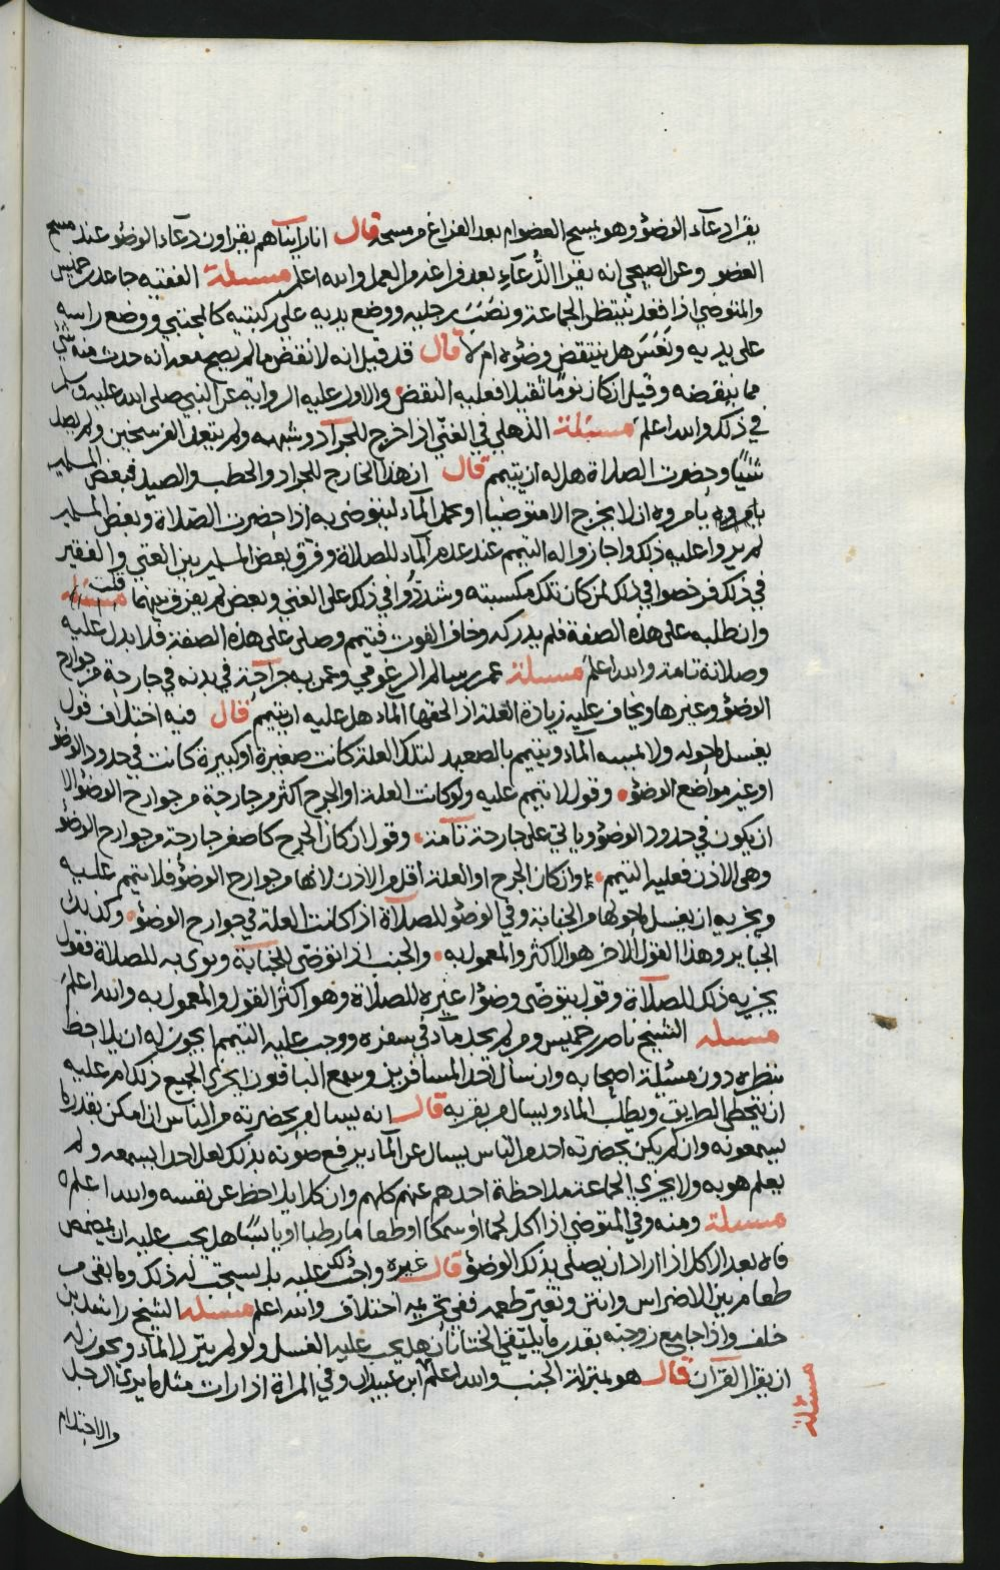 يقرا دعآء الوضوٌ وهو يمسح العضو ام بعد الفراغ من مسحه قال انا راينآهم يقراون دعآء الوضوٌ عند مسح
العضو وعن الصبحي انه يقرا الدُعآء بعد فراغه من العمل والله اعلم مسئلة الفقيه جاعد بن خميس
والمتوضي اذا قعد ينتظر الجماعة ونصَبَ رجليه ووضع يديه على ركبتيه كالمجتبي ووضع راسه
على يديه ونَعَسَ هل ينتقض وضوٌه ام لا قال قد قيل انه لا نقض ما لم يصح معه انه حدث منه شيٌ
مما ينقضه وقيل ان كان نومًا ثقيلا فعليه النقض والاول عليه الرواية عن النبي صلى الله عليه وسلم
في ذلك والله اعلم مسئلة الذهلي في الغني اذا خرج للجراد وشبهه ولم يتعد الفرسخين ولم يصل
شيًا وحضرت الصلاة هل له ان يتيمم قال ان هذا الخارج للجراد والحطب والصيد فبعض المسلمين
يامروه ان لا يخرج الا متوضيا او يحمل المآء ليتوضى به اذا حضرت الصّلاة وبعض المسلمين
لم يروا عليه ذلك واجازوا له التيمم عند عدم المآء للصلاة وفرق بعض المسلمين بين الغني والفقير
في ذلك فرخصوا في ذلك لمن كان تلك مكسبته وشددُوا في ذلك على الغني وبعض لم يفرق بينهما مسئلة قلت
وان طلبه على هذه الصفة فلم يدركه وخاف الفوت فتيمم وصلى على هذه الصفة فلا بدل عليه
وصلاته تامة والله اعلم مسئلة عمر بن سالم الرغومي وعمن به جراحة في بدنه في جارحة من جوارح
الوضوٌ وغيرها ويخاف عليه زيادة العلة اذا الحقها المآء هل عليه ان يتيمم قال فيه اختلاف قول
يغسل ما حوله ولا يمسه المآء ويتيمم بالصعيد لتلك العلة كانت صغيرة او كبيرة كانت في حدود الوضوٌ
او غير مواضع الوضوٌ وقول لا تيمم عليه ولو كانت العلة او الجرح اكثر من جارحة من جوارح الوضوٌ الا
ان يكون في حدود الوضوٌ وياتي على جارحة تآمة وقول ان كان الجرح كاصغر جارحة من جوارح الوضوٌ
وهي الاذن فعليه التيمم وان كان الجرح او العلة اقل من الاذن لانها من جوارح الوضوٌ فلا تيمم عليه
ويجزيه ان يغسل ما حولها من الجنابة وفي الوضوٌ للصلآة اذا كانت العلة في جوارح الوضوٌ وكذلك
الجباير وهذا القول الاخر هو الاكثر والمعمول به والجنب اذا توضى للجنابة ونوى به للصلاة فقول
يجزيه ذلك للصلآة وقول يتوضى وضوٌا غيره للصلاة وهو اكثر القول والمعمول به والله اعلم
مسئله الشيخ ناصر بن خميس ومن لم يجد مآء في سفره ووجب عليه التيمم ايجوز له ان يلاحظ
بنظره دون مسئلة اصحابه وان سال احد المسافرين وسمع الباقون ايجزي الجميع ذلك ام عليه
ان يتخطى الطريق ويطلب المآء ويسال من يقربه قال انه يسال من بحضرته من الناس ان امكن بقدر ما
يسمعونه وان لم يكن بحضرته احد من الناس يسال عن المآء يرفع صوته بذلك لعل احدا يسمعه ولم
يعلم هو به ولا يجزي الجماعة ملاحظة احدهم عنهم كلهم وان كلا يلاحظ عن نفسه والله اعلم
مسئلة ومنه وفي المتوضي اذا اكل لحما او سمكا او طعاما رطبا او يابسًا هل يجب عليه ان يمضمض
فاه بعد الاكل اذا اراد ان يصلي بذلك الوضوٌ قال غيره واجب ذلك عليه بل يستحب له ذلك وما بقي من
طعام بين الاضراس وانتن وتغيّر طعمه ففي تحريمه اختلاف والله اعلم مسئلة الشيخ راشد بن
خلف واذا جامع زوجته بقدر ما يلتقي الختانان هل يجب عليه الغسل ولو لم ينزل المآء ويجوز له
ان يقرا القرآن قال هو بمنزلة الجنب والله اعلم ابن عبيدان وفي المراة اذا رات مثل ما يرى الرجل
مسئلة
والاحتلام